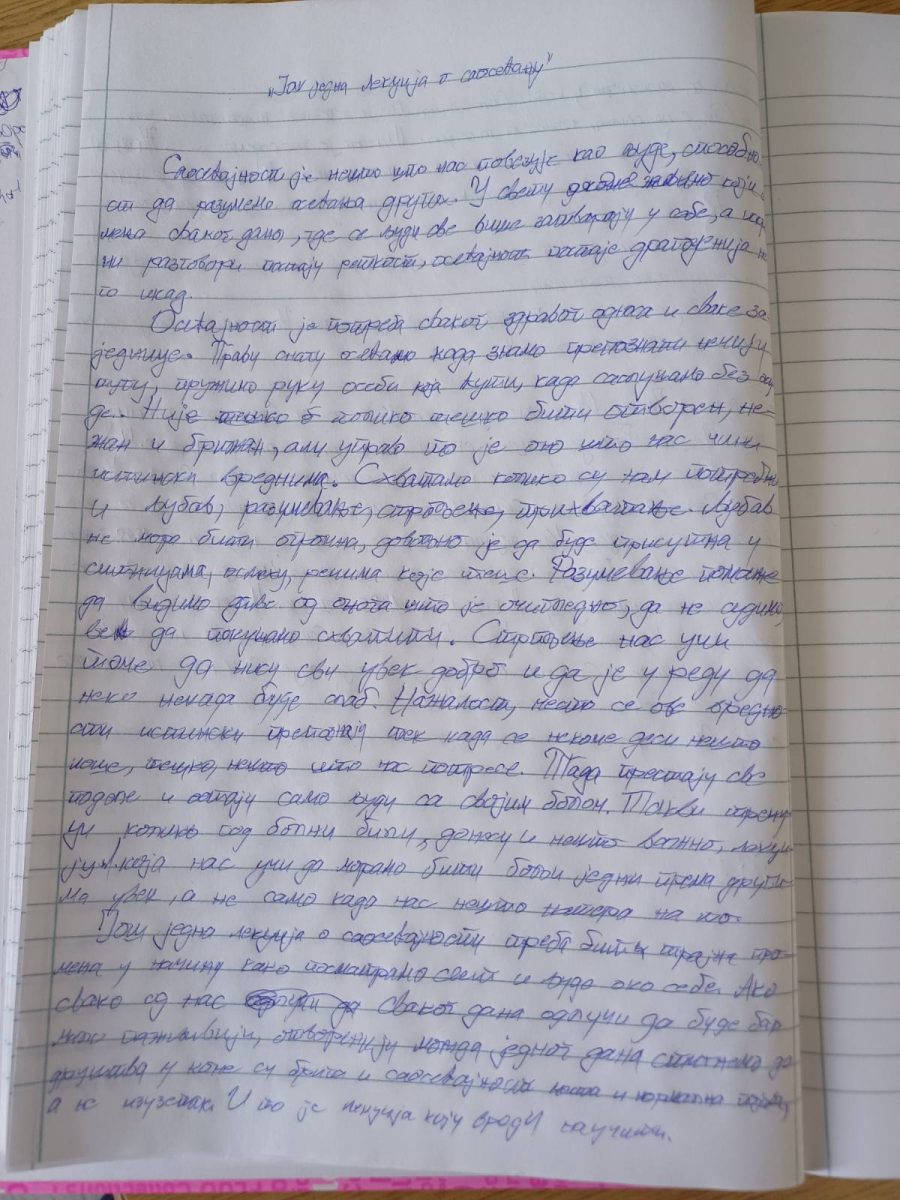 „Још једна лекција о саосећању"
Саосећајност је нешто што нас повезује као људе, способно-
ст да разумемо осећања других. У свету који се
мења сваког дана, где се људи све више затварају у себе, а
ни разговори постају реткост, осећајност постаје драгоценија не
го икад.
Осећајност је потреба сваког здравог односа и сваке за-
једнице. Праву снагу осећамо када знамо препознати нечију
патњу, пружимо руку особи која ћути, када саслушамо без
де. Није толико тешко бити отворен, не-
жан и брижан, али управо то је оно што нас чини
истински вреднима. Схватамо колико су нам потребни
и љубав, разумевање, стрпљење, прихватање. Љубав
не мора бити огромна, довољно је да буде присутна у
ситницама, осмеху, речима које теше. Разумевање помаже
да видимо даље од онога што је очигледно, да не судимо,
већ да покушамо схватити. Стрпљење нас учи
томе да нису сви увек добро и да је у реду да
неко некада буде слаб. Нажалост, често се ове вредно-
сти истински препознају тек када се некоме деси нешто
лоше, тешко, нешто што нас потресе. Тада престају све
поделе и остају само људи са својим болом. Такви трену
ци колико год болни били, донесу и нешто важно, лекци
ју која нас учи да морамо бити бољи једни према други-
ма увек, а не само када нас нешто натера на то.
Још једна лекција о саосећајности треба бити трајна про-
мена у начину како посматрамо свет и људе око себе. Ако
свако од нас сваког дана одлучи да буде бар
мало пажљивији, отворенији можда једног дана стигнемо до
друштва у коме су брига и саосећајност честа и нормална појава,
а не изузетак. И то је лекција коју вреди научити.